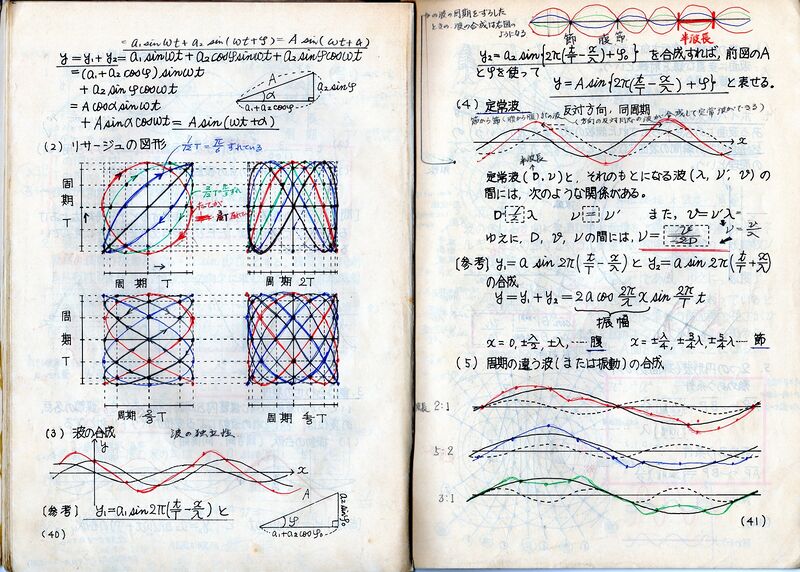 = a₁ sin ωt + a₂ sin (ωt + φ) = A sin (ωt + α)
y = y₁ + y₂ = a₁ sin ωt + a₂ cos φ sin ωt + a₂ sin φ cos ωt
= (a₁ + a₂ cos φ) sin ωt
+ a₂ sin φ cos ωt
= A cos α sin ωt
+ A sin α cos ωt = A sin (ωt + α)
A
α
a₂ sin φ
a₁ + a₂ cos φ
(2) リサージュの図形
1/12 T = π/6 ずれている
周期 T
周期 T
周期 2T
周期 T
周期
周期
(3) 波の合成
波の独立性
y
x
〔参考〕 y₁ = a₁ sin 2π(t/T − x/λ) と
A
φ
a₂ sin φ₀
a₁ + a₂ cos φ₀
(40)
節 腹 節
半波長
y₂ = a₂ sin{2π(t/T − x/λ) + φ₀} を合成すれば, 前図のA
とφを使って y = A sin{2π(t/T − x/λ) + φ} と表せる。
(4) 定常波 反対方向, 同周期
x
半波長
定常波 (D, ν) と, それのもとになる波 (λ, ν′, v) の
間には, 次のような関係がある。
D = λ/2 ν = ν′ また, v = ν′λ
ゆえに, D, v, ν の間には, ν = v/2D
ν = v/λ
〔参考〕 y₁ = a sin 2π(t/T − x/λ) と y₂ = a sin 2π(t/T + x/λ)
の合成
y = y₁ + y₂ = 2a cos 2π/λ x sin 2π/T t
振幅
x = 0, ±λ/2, ±λ, … 腹 x = ±λ/4, ±3/4λ, ±5/4λ … 節
(5) 周期の違う波 (または振動) の合成
2:1
5:2
3:1
(41)